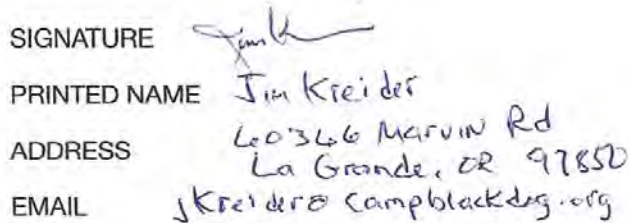 SIGNATURE Jim K
PRINTED NAME Jim Kreider
ADDRESS 60366 Marvin Rd
La Grande, OR 97850
EMAIL jkreider@campblackdog.org